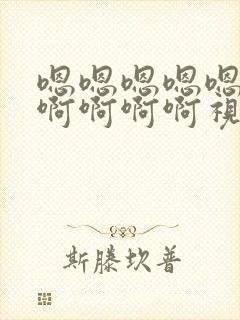 嗯嗯嗯嗯嗯
啊啊啊啊視
斯滕坎普